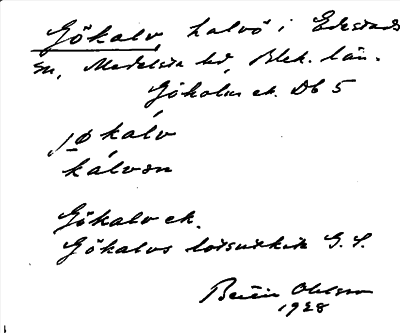 Gökalv, halvö i Edestads
sn, Medelsta hd, Blek. län.
Gökalv ek. Db 5
jø kalv
kálvən
Gökalv ek.
Gökalvs G. S.
Ohlsson
1928